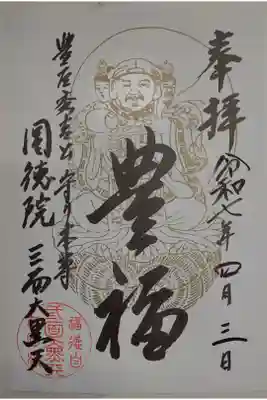 奉拝
令和七年四月三日
豊福
豊臣秀吉公守り本尊
三面大黒天
圓徳院